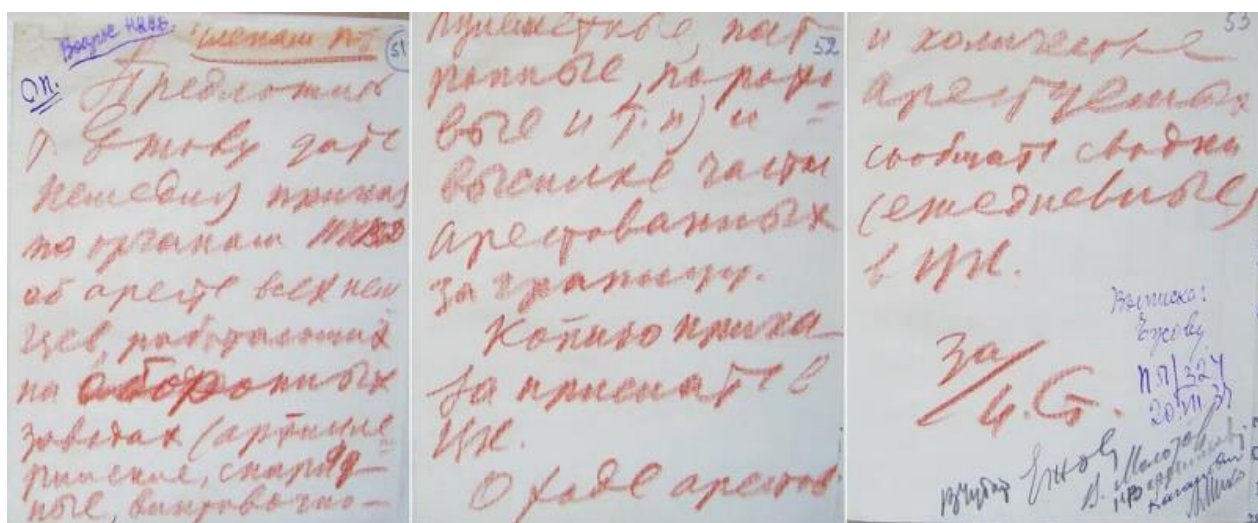 Вопрос НКВД.
Членам ПБ
51
ОП.
Предложить
т. Ежову дать
немедля приказ
по органам НКВД
об аресте всех нем
цев, работающих
на оборонных
заводах (артилле
рийские, снаряд-
ные, винтовочно-
52
пулеметные, пат-
ронные, порохо
вые и т.п.) и
высылке части
арестованных
за границу.
Копию прика
за прислать в
ЦК.
О ходе арестов
53
и количестве
арестуемых
сообщать сводки
(ежедневные)
в ЦК.
За
Выписка:
Ежову
ПП/324
20.VII 37
Ежов
В. Молотов
Каганович